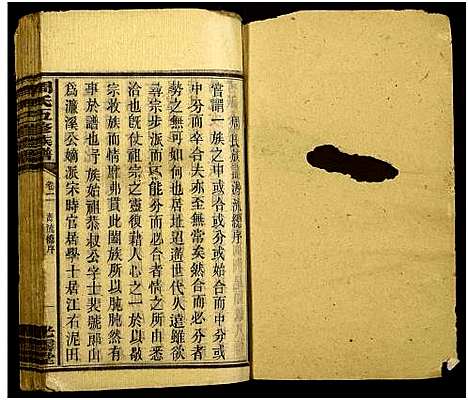 周氏族譜源流總序
嘗謂一族之中或合或分或始合
中分而卒合夫亦至無常矣然合而必分者
勢之無可如何也居址迢遞世代久遠雖欲
尋宗步派而不能分而必合者情之所由悉
洽也既仗祖宗之靈復藉人心之一於以敬
宗收族而情意弗貫此闔族所以肫肫然有
事於譜也吾族始祖恭叔公字士裴號
山
為濂溪公嫡派宋時官居學士居江右泥田
周氏五修族譜
卷一
源流總序
一